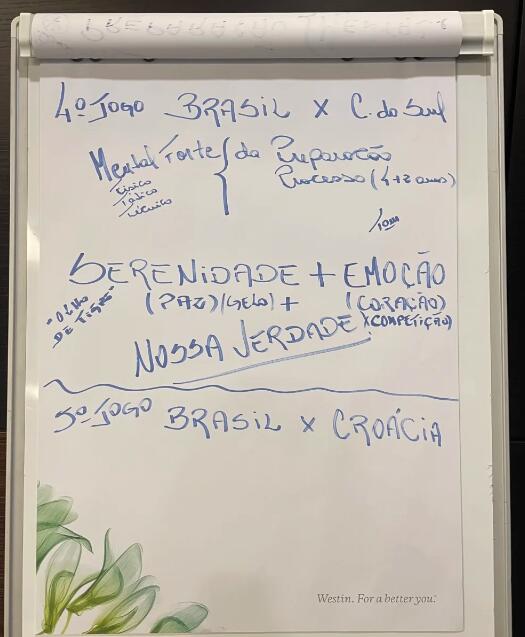 4º JOGO BRASIL X C. do Sul
Mental Forte { da Preparação
Processo (4+2 anos)
Físico
Tático
Técnico
SERENIDADE + EMOÇÃO
(PAZ)(GELO) + (CORAÇÃO)
"OLHO
DE TIGRE"
X COMPETIÇÃO)
NOSSA VERDADE
5º JOGO BRASIL X CROÁCIA
Westin. For a better you.